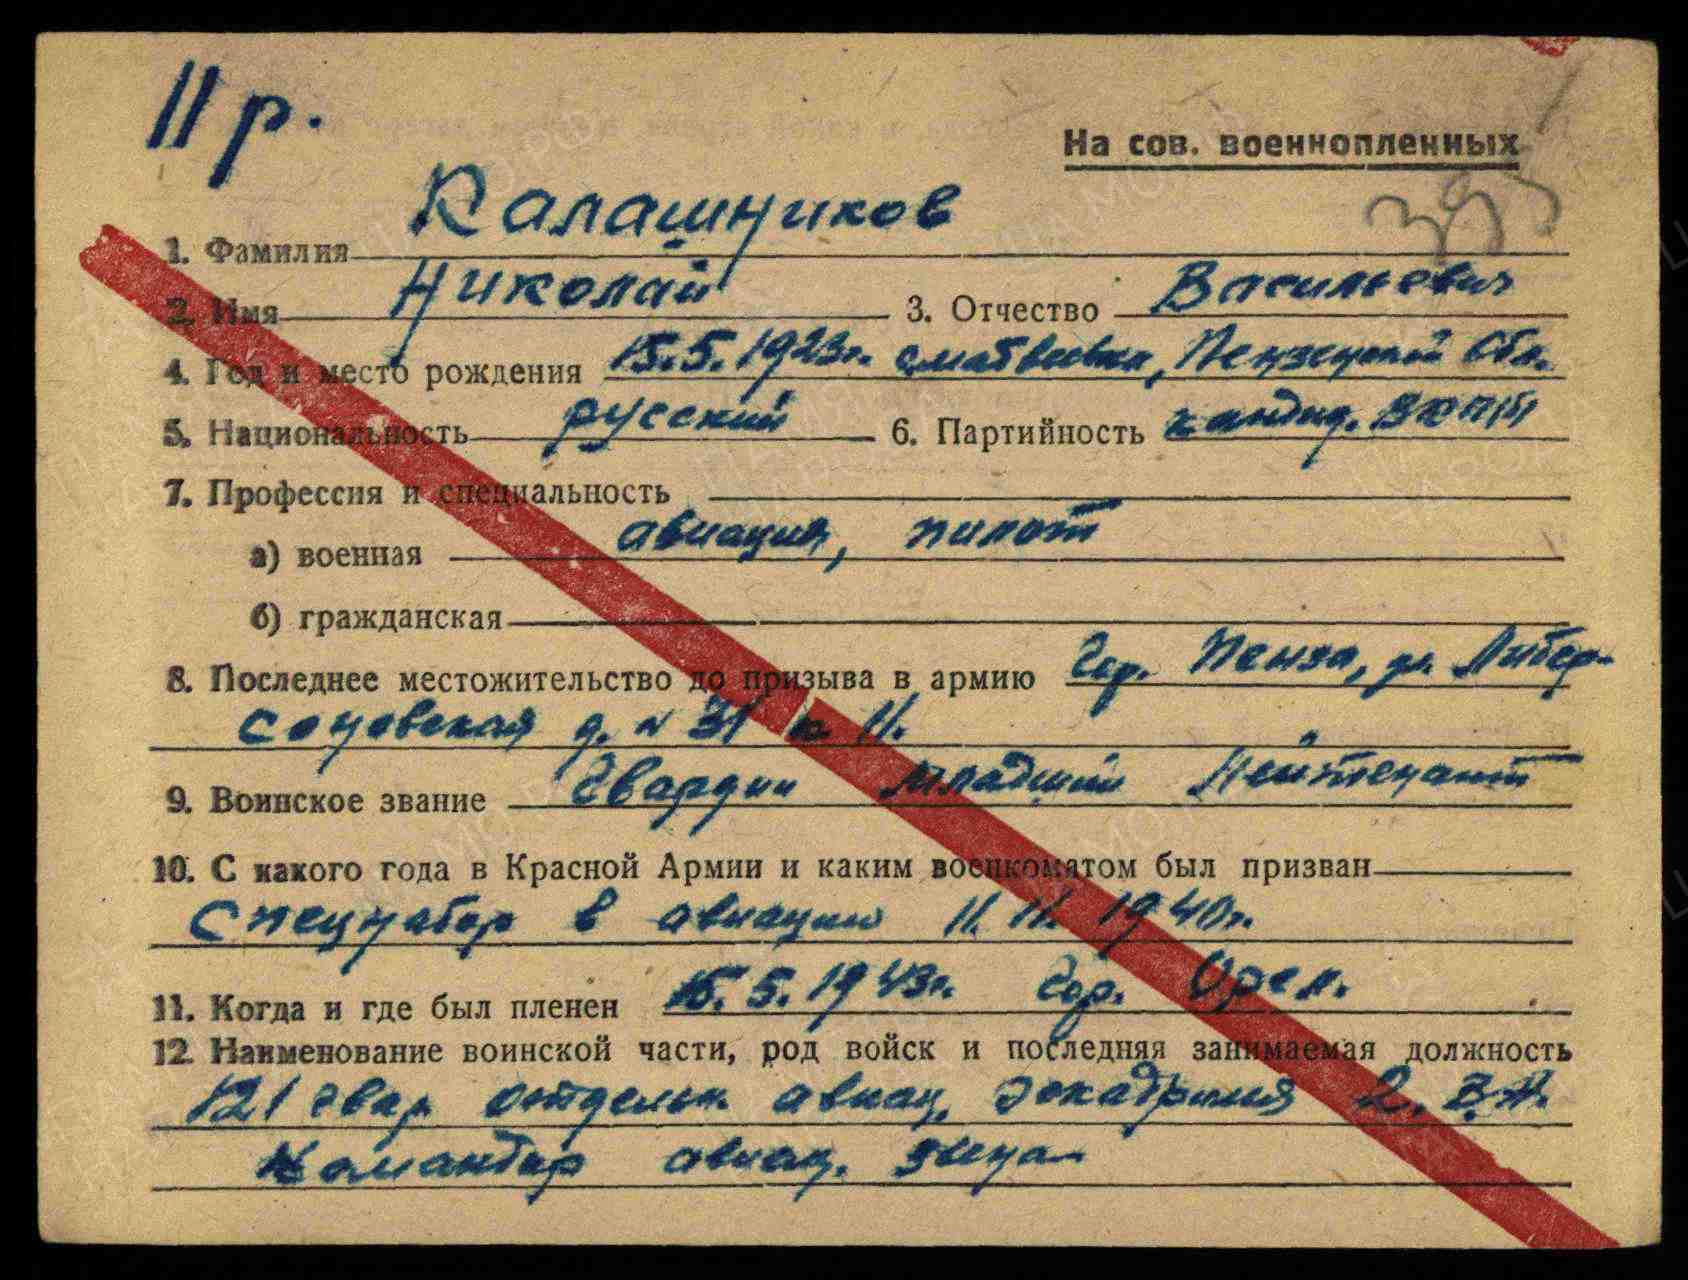 11 р.
На сов. военнопленных
395
1. Фамилия Калашников
2. Имя Николай 3. Отчество Васильевич
4. Год и место рождения 15.5.1923г. с Матвеевка, Пензенской Обл.
5. Национальность русский 6. Партийность кандид. ВКП(б)
7. Профессия и специальность
а) военная авиация, пилот
б) гражданская
8. Последнее местожительство до призыва в армию Гор. Пенза, ул. Либер-
соновская д. № 31 к 11.
9. Воинское звание Гвардии младший Лейтенант
10. С какого года в Красной Армии и каким военкоматом был призван
Спецнабор в авиацию 11.11.1940г.
11. Когда и где был пленен 15.5.1943г. Гор. Орел.
12. Наименование воинской части, род войск и последняя занимаемая должность
121 гвар отдельн. авиац. эскадрилия 2. В.А.
Командир авиац. звена